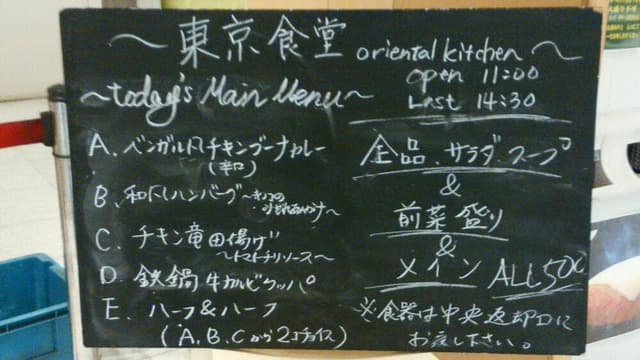 〜東京食堂 oriental kitchen〜
open 11:00
Last 14:30
〜today's Main Menu〜
A. ベンガル風チキンブーナカレー
(辛口)
B. 和風ハンバーグ〜きのこの
みぞれあんかけ〜
C. チキン竜田揚げ
〜トマトチリソース〜
D. 鉄鍋牛カルビクッパ
E. ハーフ&ハーフ
(A,B,Cから2コチョイス)
全品、サラダ スープ
&
前菜盛り
&
メイン ALL500
※食器は中央返却口に
お戻し下さい。